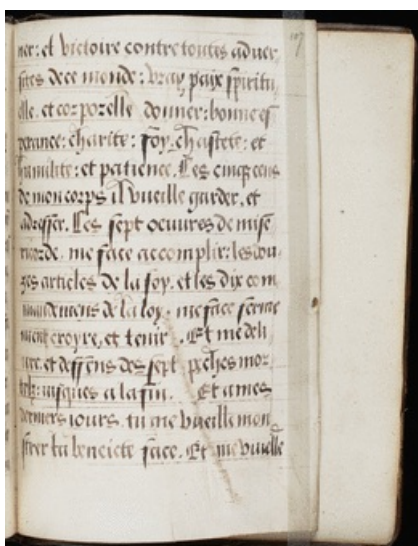 107
ner: et victoire contre toutes aduer
sites de ce monde: vray paix spiritu
elle. et corporelle donner: bonne es
perance: charite: foy. chastete: et
humilite: et patience. Les cinq cens
de mon corps il vueille garder. et
adresser. Les sept oeuures de mise
ricorde. me face accomplir: les dou
zes articles de la foy. et les dix com
mandemens de la loy: me face ferme
ment croyre. et tenir. Et me deli
ure. et deffens des sept peches mor
telz: iusques a la fin. Et a mes
derniers iours. tu me vueille mon
strer ta beneicte face. Et me vueille